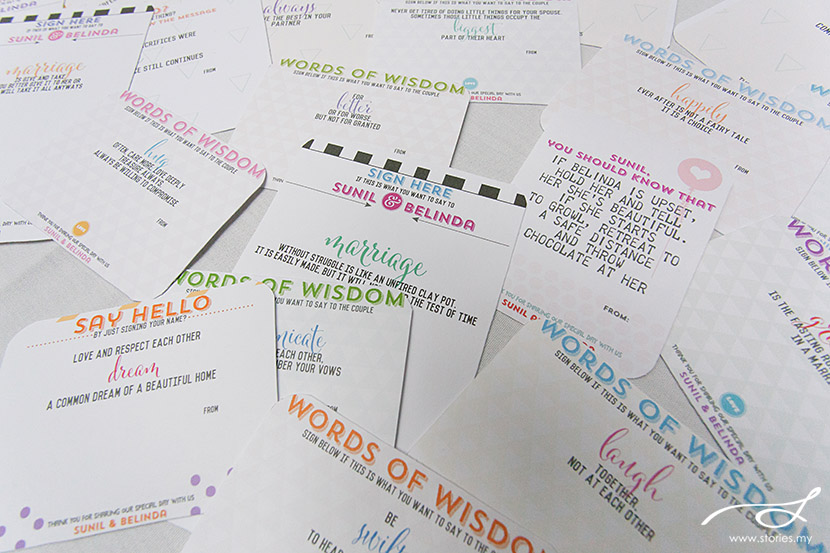 SIGN HERE
IF THIS IS WHAT YOU WANT TO SAY TO
SUNIL & BELINDA
marriage
IS GIVE AND TAKE.
YOU BETTER GIVE IT TO HER OR
WILL TAKE IT ALL ANTWAYS
THE MESSAGE
SACRIFICES WERE
STILL CONTINUES
FROM
always
THE BEST IN YOUR
PARTNER
NEVER GET TIRED OF DOING LITTLE THINGS FOR YOUR SPOUSE
SOMETIMES THOSE LITTLE THINGS OCCUPY THE
biggest
PART OF THEIR HEART
FROM
THANK YOU FOR SHARING OUR SPECIAL DAY WITH US
& BELINDA
WORDS OF WISDOM
SIGN BELOW IF THIS IS WHAT YOU WANT TO SAY TO THE COUPLE
FOR
better
OR FOR WORSE
BUT NOT FOR GRANTED
FROM
WORDS OF WISDOM
SIGN BELOW IF THIS IS WHAT YOU WANT TO SAY TO THE COUPLE
happily
EVER AFTER IS NOT A FAIRY TALE
IT IS A CHOICE
FROM
WORDS OF WISDOM
SIGN BELOW IF THIS IS WHAT YOU WANT TO SAY TO THE COUPLE
hug
OFTEN, CARE MORE, LOVE DEEPLY
TREASURE ALWAYS.
ALWAYS BE WILLING TO COMPROMISE
FROM
THANK YOU FOR SHARING OUR SPECIAL DAY WITH US
SUNIL & BELINDA
SIGN HERE
IF THIS IS WHAT YOU WANT TO SAY TO
SUNIL & BELINDA
marriage
WITHOUT STRUGGLE IS LIKE AN UNFIRED CLAY POT.
IT IS EASILY MADE, BUT IT WILL
THE TEST OF TIME
SUNIL,
YOU SHOULD KNOW THAT
IF BELINDA IS UPSET,
HOLD HER AND TELL
HER SHE'S BEAUTIFUL.
IF SHE STARTS
TO GROWL, RETREAT TO
A SAFE DISTANCE
AND THROW
CHOCOLATE AT HER
FROM:
THANK YOU FOR SHARING OUR SPECIAL DAY WITH US
SUNIL
SAY HELLO
BY JUST SIGNING YOUR NAME?
LOVE AND RESPECT EACH OTHER
dream
A COMMON DREAM OF A BEAUTIFUL HOME
FROM
THANK YOU FOR SHARING OUR SPECIAL DAY WITH US
SUNIL & BELINDA
WORDS OF WISDOM
WANT TO SAY TO THE COUPLE
EACH OTHER,
YOUR VOWS
WORDS OF WISDOM
SIGN BELOW IF THIS IS WHAT YOU WANT TO SAY TO THE COUPLE
BE
swift
TO
WORDS OF WISDOM
SIGN BELOW IF THIS IS WHAT YOU WANT TO SAY TO THE COUPLE
laugh
TOGETHER
NOT AT EACH OTHER
FROM
SIGN BELOW
IS THE
IN A
THANK YOU FOR SHARING OUR SPECIAL DAY WITH US
SUNIL & BELINDA
www.stories.my